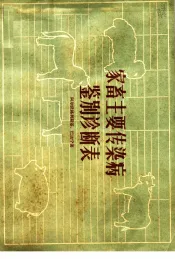 家畜主要传染病
鉴别诊断表